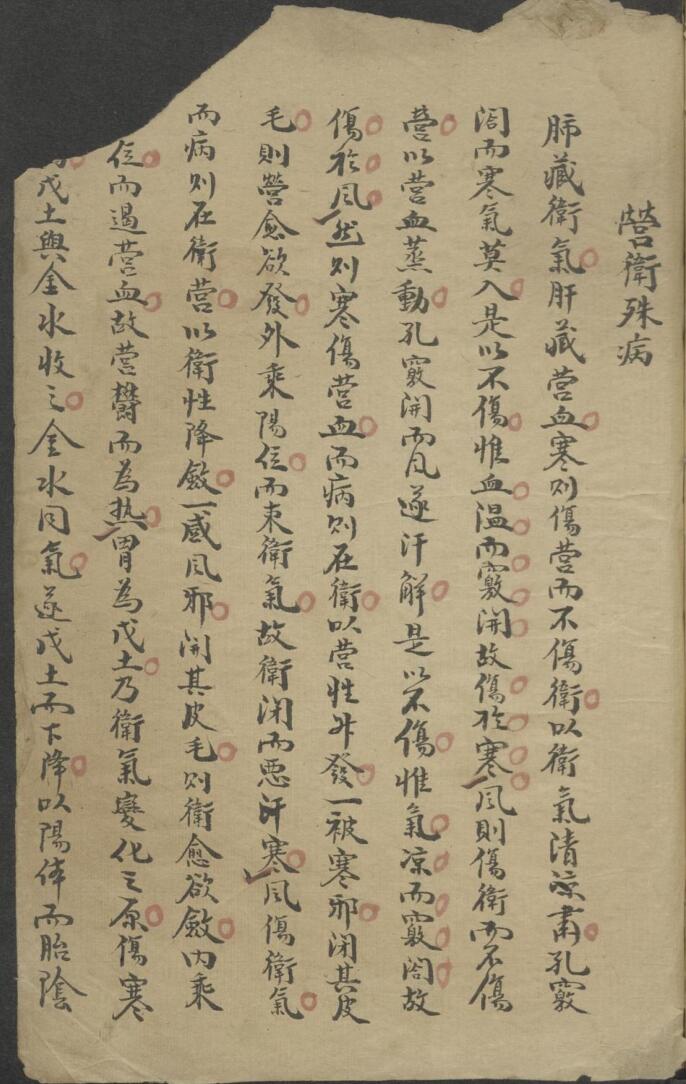 營衛殊病
肺藏衛氣肝藏营血寒则傷营而不傷衛以衛氣清凉肅孔竅
闔而寒氣莫入是以不傷惟血温而竅開故傷於寒風則傷衛而不傷
营以营血蒸動孔竅開而风遂汗解是以不傷惟氣凉而竅闔故
傷於风然则寒傷营血而病则在衛以营性外發一被寒邪闭其皮
毛則營愈欲發外乘陽位而束衛氣故衛闭而惡汗寒风傷衛氣
而病则在衛营以衛性降斂一感风邪開其皮毛则衛愈欲斂内乘
位而遏营血故营鬱而為热胃為戊土乃衛氣變化之原傷寒
戊土與金水收之金水同氣遂戊土而下降以陽体而胎陰